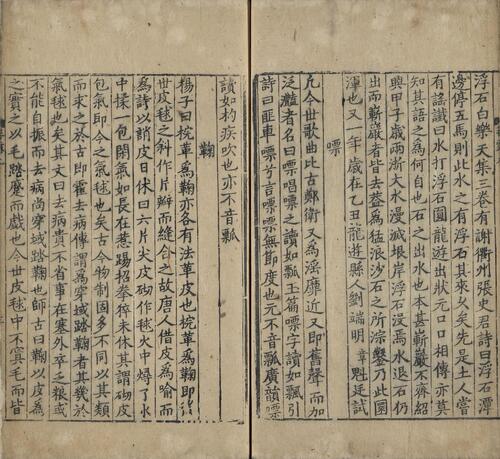 浮石白樂天集三卷有謝衢州張史君詩曰浮石潭
邊停五馬則此水之有浮石其來久矣先是土人嘗
有謠讖曰水打浮石圓龍游出狀元口口相傳亦莫
知其語之為何自也石之出水也本甚嶄巖不齊紹
興甲子歲兩浙大水漫滅垠岸浮石浸焉水退石仍
出而嶄巖者皆去葢為猛浪沙石之所淙鑿乃此圓
渾也又一年歲在乙丑龍遊縣人劉端明章魁廷試
嘌
凡今世歌曲比古鄭衛又為淫靡近又即舊聲而加
泛灩者名曰嘌唱嘌之讀如瓢玉篇嘌字讀如飄引
詩曰匪車嘌兮言嘌嘌無節度也元不音瓢廣韻嘌
讀如杓疾吹也亦不音瓢
鞠
楊子曰梡革為鞠亦各有法革皮也梡革為鞠即後
世皮毬之斜作片瓣而縫合之故唐人借皮為喻而
為詩以誚皮日休曰六片尖皮砌作毬火中燖了水
中揉一包閑氣如長在惹踢招拳卒未休其謂砌皮
包氣即今之氣毬也矣古今物制固多不同以其類
而求之於古即霍去病傳謂為穿域蹋鞠者其幾於
氣毬也矣其文曰去病貴不省事在塞外卒乏糧或
不能自振而去病尚穿域蹋鞠也師古曰鞠以皮為
之實之以毛蹋蹙而戲也今世皮毬中不寘毛而皆